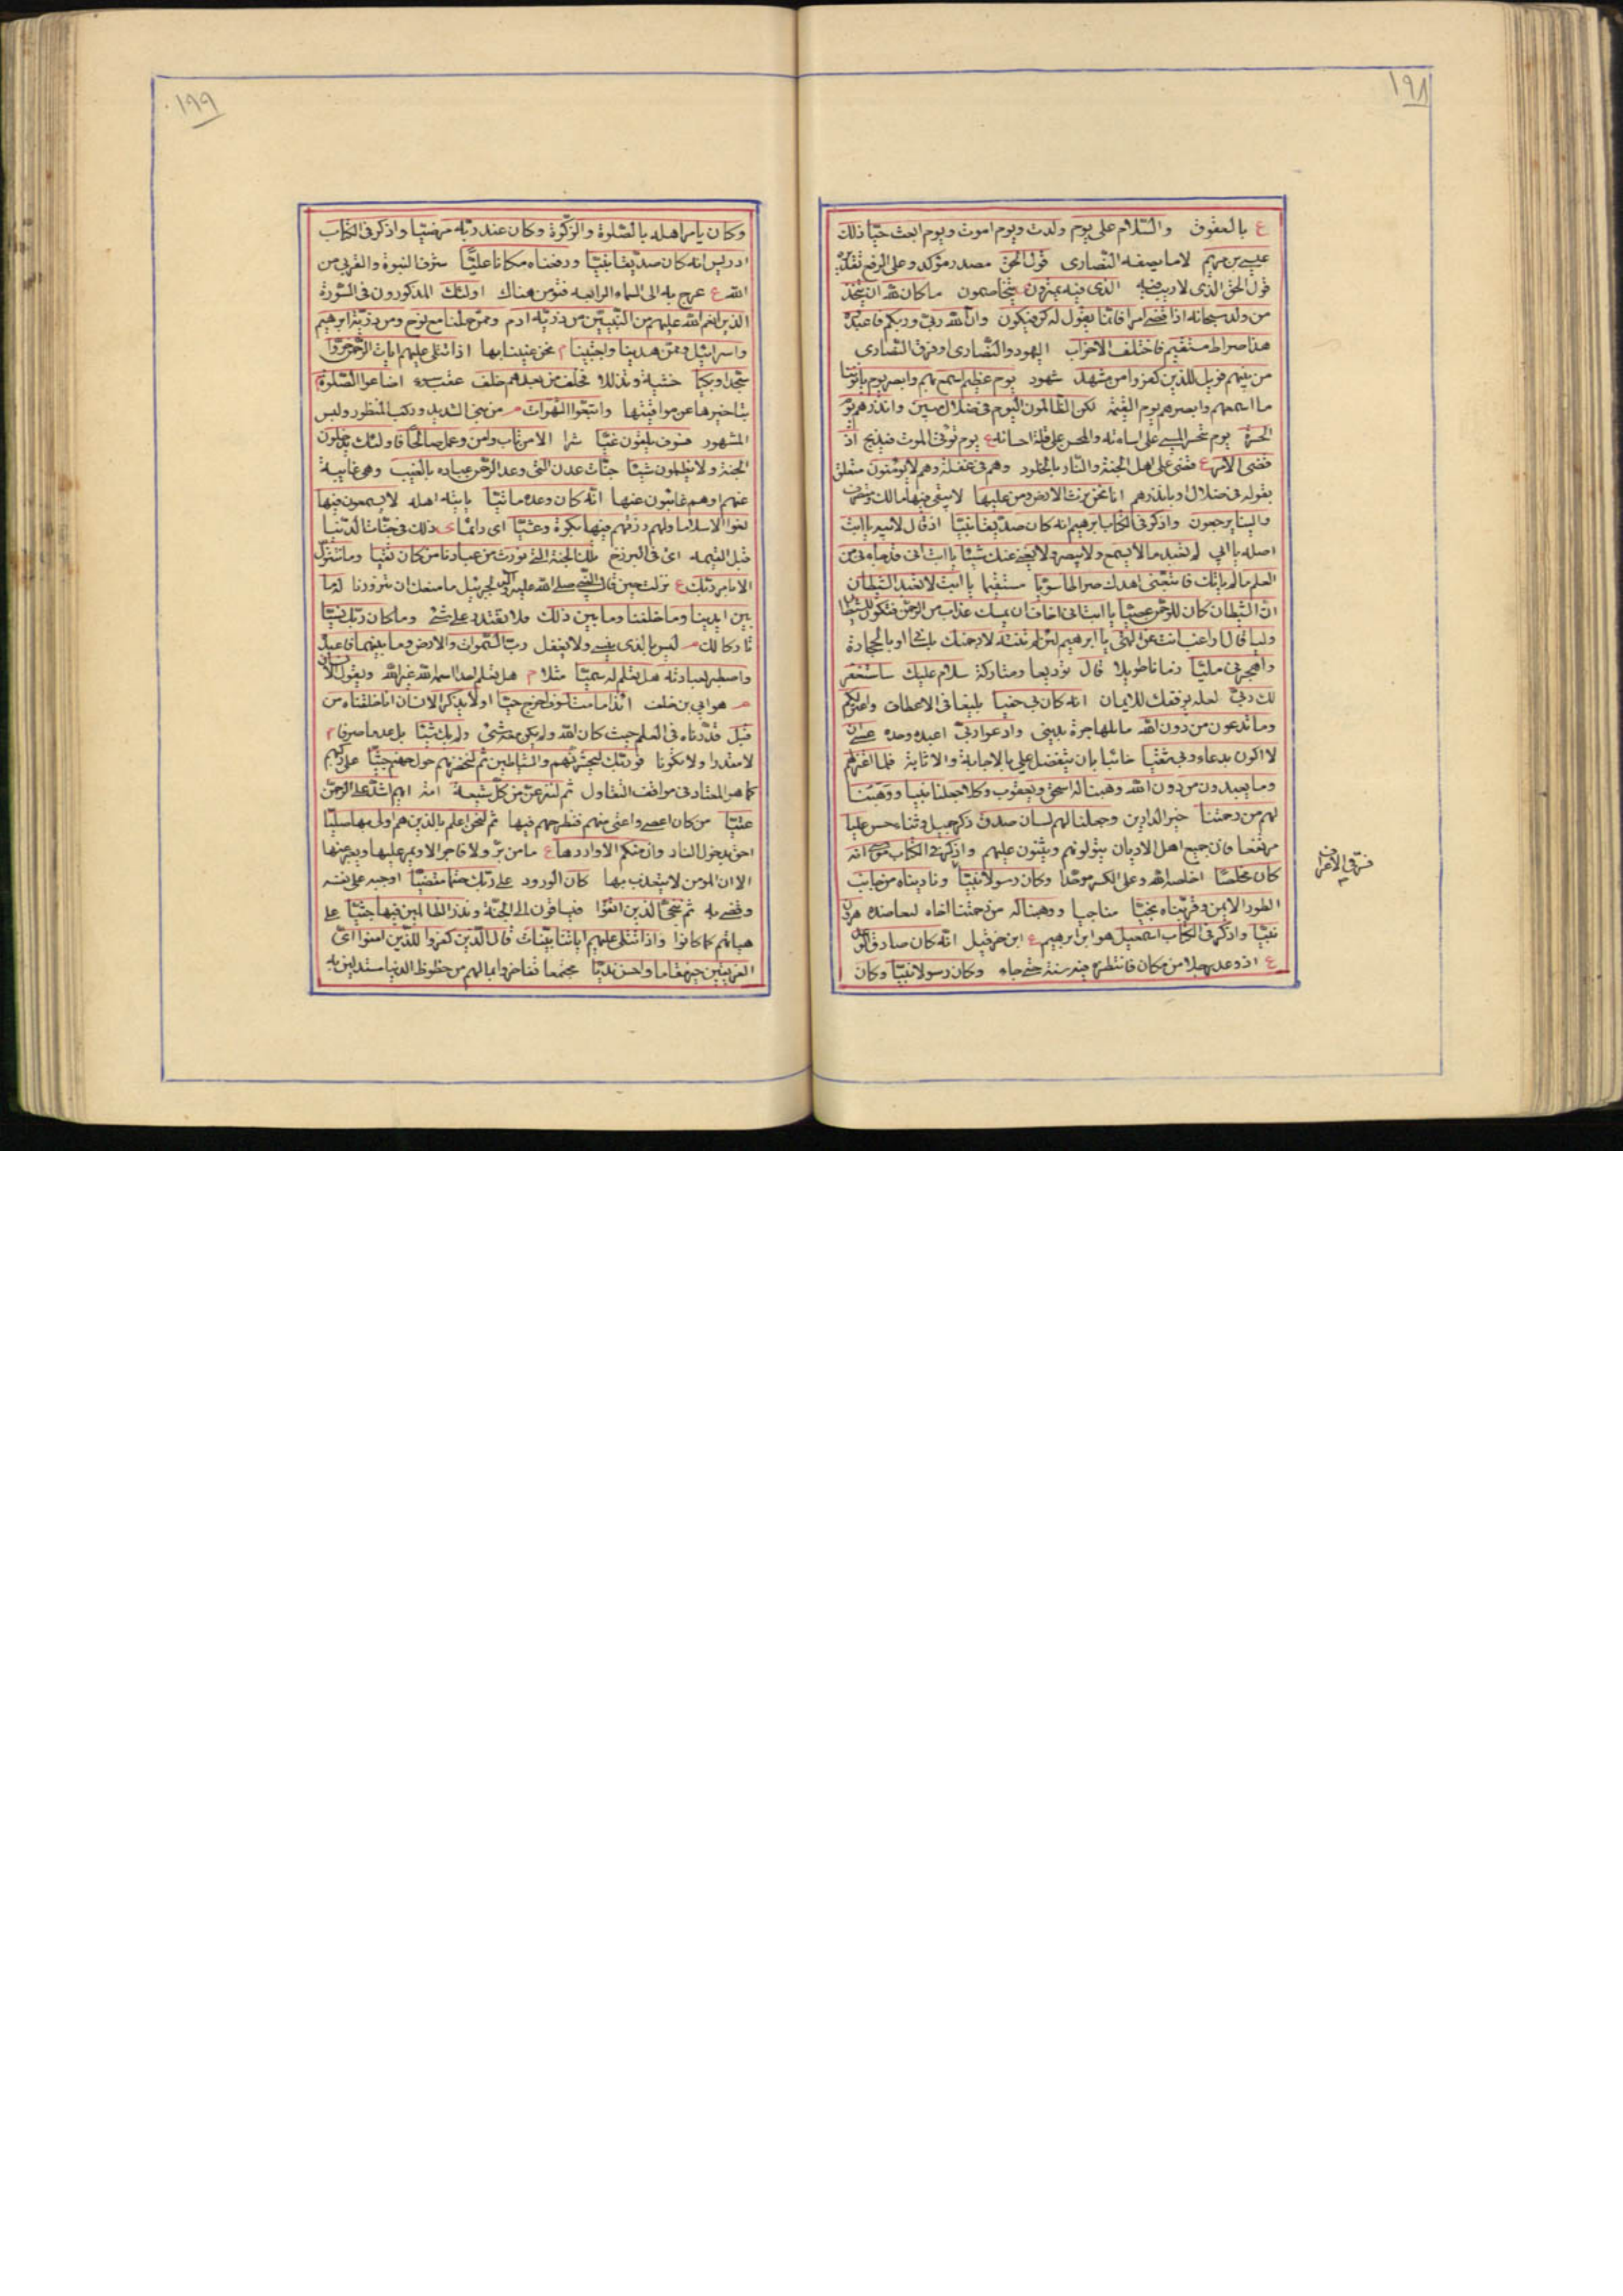 ١٩٨
ع بالعقوق والسّلام على يوم ولدت ويوم اموت ويوم ابعث حيّا ذلك
عيسى بن مريم لا ما يصفه النّصارى قول الحقّ مصدر مؤكد وعلى الرفع تقديره
قول الحق الذى لا ريب فيه الذى فيه يمترون ع يتخاصمون ما كان لله ان يتّخذ
من ولد سبحانه اذا قضى امرا فانّما يقول له كن فيكون وانّ الله ربّى وربّكم فاعبدوه
هذا صراط مستقيم فاختلف الاحزاب اليهود والنّصارى او فرق النّصارى
من بينهم فويل للذين كفروا من مشهد شهود يوم عظيم اسمع بهم وابصر يوم يأتوننا
ما اسمعهم وابصرهم يوم القيٰمة لكن الظّالمون اليوم فى ضلال مبين وانذرهم يوم
الحسرة يوم يتحسّر المسىء على اساءته والمحسن على قلة احسانه ع يوم يؤتى الموت فيذبح اذ
قضى الامر ع قضى على اهل الجنة والنّار بالخلود وهم فى غفلة وهم لا يؤمنون متعلق
بقوله فى ضلال او بانذرهم انا نحن نرث الارض ومن عليها لا يبقى فيها مالك ومتصرف
والينا يرجعون واذكر فى الكتاب ابرهيم انه كان صدّيقا نبيّا اذ قال لابيه يا ابت
اصله يا ابى لم تعبد ما لا يسمع ولا يبصر ولا يغنى عنك شيئا يا ابت انى قد جاءنى من
العلم ما لم يأتك فاتّبعنى اهدك صراطا سويّا مستقيما يا ابت لا تعبد الشّيطان
انّ الشّيطان كان للرّحمن عصيّا يا ابت انى اخاف ان يمسك عذاب من الرّحمن فتكون للشيطان
وليا قال اراغب انت عن الهتى يا ابرهيم لئن لم تنته لارجمنك بلسانى او بالحجارة
واهجرنى مليّا زمانا طويلا قال توديعا ومتاركة سلام عليك ساستغفر
لك ربّى لعله يوفقك للايمان انه كان بى حفيا بليغا فى الالطاف واعتزلكم
وما تدعون من دون الله بالمهاجرة بدينى وادعوا ربّى اعبده وحده عسى ان
لا اكون بدعاء ربى شقيّا خائبا بان يتفضل على بالاجابة والاثابة فلما اعتزلهم
وما يعبدون من دون الله وهبنا له اسحق ويعقوب وكلا جعلنا نبيا ووهبنا
لهم من رحمتنا خير الدارين وجعلنا لهم لسان صدق ذكر جميل وثناء حسن عليا
مرتفعا فان جميع اهل الاديان يتولونهم ويثنون عليهم واذكر فى الكتاب موسى انه
كان مخلصا اخلصه الله وعلى الكسر موحّدا وكان رسولا نبيّا وناديناه من جانب
الطور الايمن وقرّبناه نجيّا مناجيا ووهبنا له من رحمتنا اخاه لمعاضده هرون
نبيّا واذكر فى الكتاب اسمعيل هو ابن ابرهيم ع ابن حزقيل انّه كان صادق الوعد
ع اذ وعد رجلا من مكان فانتظره فيه سنة حتى جاء وكان رسولا نبيّا وكان
١٩٩
وكان يأمر اهله بالصّلوة والزّكوة وكان عند ربّه مرضيّا واذكر فى الكتاب
ادريس انه كان صدّيقا نبيّا ورفعناه مكانا عليّا شرف النبوة والقربى من
الله ع عرج به الى السماء الرابعة اولئك المذكورون فى السّورة
الذين انعم الله عليهم من النّبيّين من ذريّة ادم وممّن حملنا مع نوح ومن ذريّة ابرهيم
واسرائيل وممّن هدينا واجتبينا م نحن عنينا بها اذا تتلى عليهم ايات الرّحمن خرّوا
سجّدا وبكيا خشية وتذللا فخلف من بعدهم خلف عقب سوء اضاعوا الصّلوة
بتاخيرها عن مواقيتها واتبعوا الشّهوات من بنى الشديد وركب المنظور ولبس
المشهور فسوف يلقون غيّا شرا الا من تاب وامن وعمل صالحا فاولئك يدخلون
الجنة ولا يظلمون شيئا جنّات عدن التى وعد الرّحمن عباده بالغيب وهى غايبة
عنهم او هم غائبون عنها انّه كان وعده ماتيّا ياتيه اهله لا يسمعون فيها
لغوا الا سلاما ولهم رزقهم فيها بكرة وعشيّا اى دائما ى ذلك فى جنّات الدّنيا
قبل القيمة اى فى البرزخ تلك الجنة التى نورث من عبادنا من كان تقيّا وما نتنزّل
الا بامر ربّك ع نزلت حين قال النّبى صلى الله عليه وآله لجبرئيل ما منعك ان تزورنا له ما
بين ايدينا وما خلفنا وما بين ذلك فلا نقتدر على شئ وما كان ربّك نسيّا
تاركا لك ليس بالذى ينسى ولا يغفل ربّ السّموات والارض وما بينهما فاعبده
واصطبر لعبادته هل تعلم له سميّا مثلا م هل تعلم احدا اسمه الله غير الله ويقول الانسان
هو ابى بن خلف ائذا ما مت لسوف اخرج حيّا اولا يذكر الانسان انا خلقناه من
قبل قدّرناه فى العلم حيث كان الله ولم يكن معه شئ ولم يك شيئا بل عدما صرفا م
لا مقدرا ولا مكونا فوربّك لنحشرنّهم والشّياطين ثم لنحضرنّهم حول جهنم جثيّا على ركبهم
كما هو المعتاد فى مواقف التقاول ثم لننزعنّ من كلّ شيعة امة ايهم اشدّ على الرّحمن
عتيّا من كان اعصى واعتى منهم فنطرحهم فيها ثم لنحن اعلم بالذين هم اولى بها صليّا
احق بدخول النار وان منكم الا واردها ع ما من برّ ولا فاجر الا ويمر عليها
الا ان المؤمن لا يتعذب بها كان الورود على ربّك حتما مقضيّا اوجبه على نفسه
وقضى به ثم ننجّى الذين اتقوا فيساقون الى الجنّة ونذر الظالمين فيها جثيّا على
هياتهم كما كانوا واذا تتلى عليهم اياتنا بيّنات قال الّذين كفروا للّذين امنوا اىّ
الفريقين خير مقاما واحسن نديّا مجتمعا تفاخروا بما لهم من حظوظ الدنيا مستدلين به